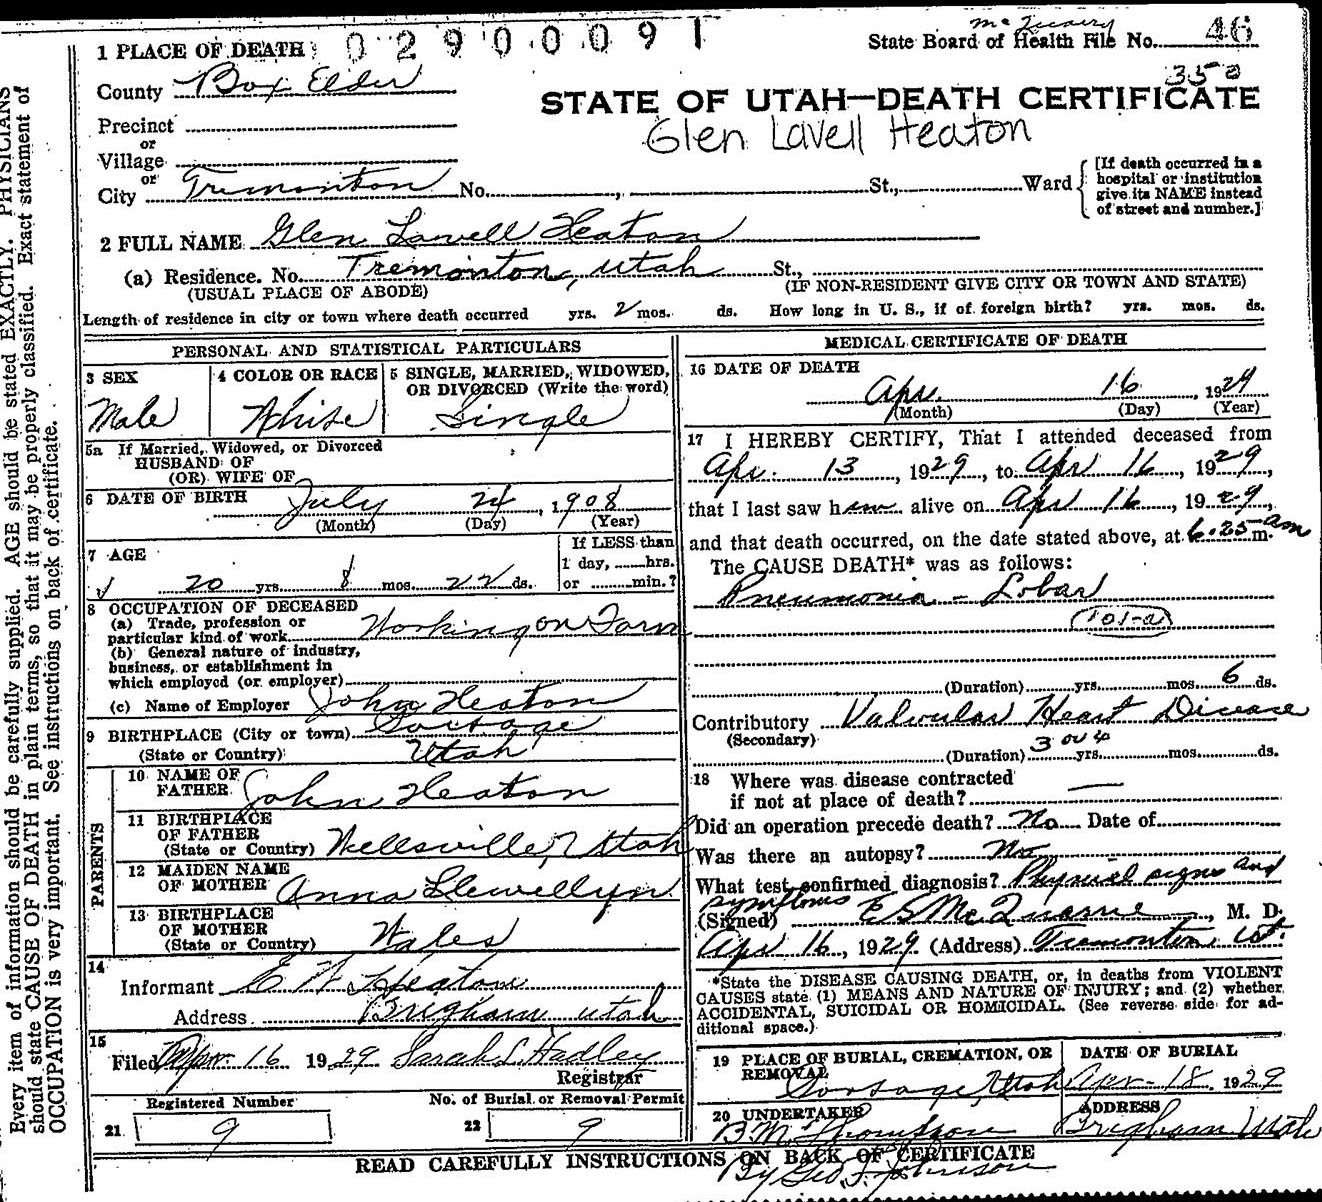 0 2 9 0 0 0 9 1
1 PLACE OF DEATH
State Board of Health File No. 46
350
County Box Elder
STATE OF UTAH—DEATH CERTIFICATE
Glen Lavell Heaton
Precinct
or
Village
or
City Tremonton No. , St., Ward
[If death occurred in a
hospital or institution
give its NAME instead
of street and number.]
2 FULL NAME Glen Lavell Heaton
(a) Residence. No. Tremonton, Utah St.,
(USUAL PLACE OF ABODE) (IF NON-RESIDENT GIVE CITY OR TOWN AND STATE)
Length of residence in city or town where death occurred yrs. 2 mos. ds. How long in U. S., if of foreign birth? yrs. mos. ds.
PERSONAL AND STATISTICAL PARTICULARS
3 SEX
Male
4 COLOR OR RACE
White
5 SINGLE, MARRIED, WIDOWED,
OR DIVORCED (Write the word)
Single
5a If Married, Widowed, or Divorced
HUSBAND OF
(OR) WIFE OF
6 DATE OF BIRTH July 24, 1908
(Month) (Day) (Year)
7 AGE
20 yrs 8 mos. 22 ds.
If LESS than
1 day, hrs.
or min.?
8 OCCUPATION OF DECEASED
(a) Trade, profession or
particular kind of work Working on Farm
(b) General nature of industry,
business, or establishment in
which employed (or employer)
(c) Name of Employer John Heaton
9 BIRTHPLACE (City or town) Portage
(State or Country) Utah
PARENTS
10 NAME OF
FATHER John Heaton
11 BIRTHPLACE
OF FATHER
(State or Country) Wellsville, Utah
12 MAIDEN NAME
OF MOTHER Anna Llewellyn
13 BIRTHPLACE
OF MOTHER
(State or Country) Wales
14
Informant E W Heaton
Address Brigham Utah
15
Filed Apr 16 1929 Sarah L Hadley
Registrar
Registered Number
21 9
No. of Burial or Removal Permit
22 9
MEDICAL CERTIFICATE OF DEATH
16 DATE OF DEATH
Apr. 16, 1929
(Month) (Day) (Year)
17 I HEREBY CERTIFY, That I attended deceased from
Apr. 13, 1929, to Apr 16, 1929,
that I last saw him alive on Apr 16, 1929,
and that death occurred, on the date stated above, at 6.25 am m.
The CAUSE DEATH* was as follows:
Pneumonia - Lobar
101-a
(Duration) yrs. mos. 6 ds.
Contributory Valvular Heart Disease
(Secondary)
(Duration) 3 or 4 yrs. mos. ds.
18 Where was disease contracted
if not at place of death? —
Did an operation precede death? No Date of
Was there an autopsy? No
What test confirmed diagnosis? Physical signs and
symptoms
(Signed) E S McQuarrie, M. D.
Apr 16, 1929 (Address) Tremonton Ut.
*State the DISEASE CAUSING DEATH, or, in deaths from VIOLENT
CAUSES state (1) MEANS AND NATURE OF INJURY; and (2) whether
ACCIDENTAL, SUICIDAL OR HOMICIDAL. (See reverse side for ad-
ditional space.)
19 PLACE OF BURIAL, CREMATION, OR
REMOVAL
Portage, Utah
DATE OF BURIAL
Apr 18, 1929
20 UNDERTAKER
B. M. Thompson
By Geo. J. Johnson
ADDRESS
Brigham Utah
READ CAREFULLY INSTRUCTIONS ON BACK OF CERTIFICATE
Every item of information should be carefully supplied. AGE should be stated EXACTLY. PHYSICIANS
should state CAUSE OF DEATH in plain terms, so that it may be properly classified. Exact statement of
OCCUPATION is very important. See instructions on back of certificate.